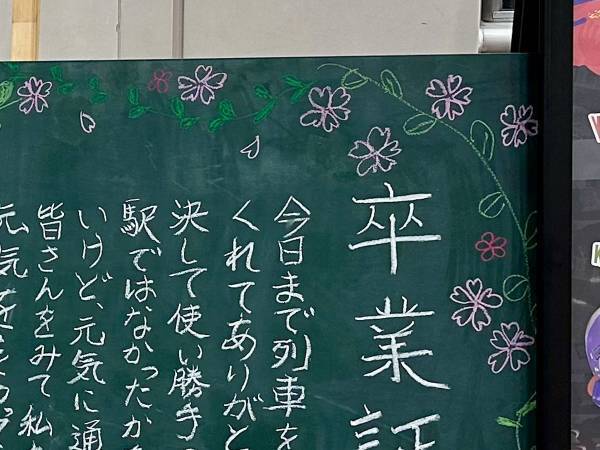 卒業証
今日まで列車を
くれてありがと
決して使い勝手の
駅ではなかったかも
いけど、元気に通
皆さんをみて私
元気をもらっ